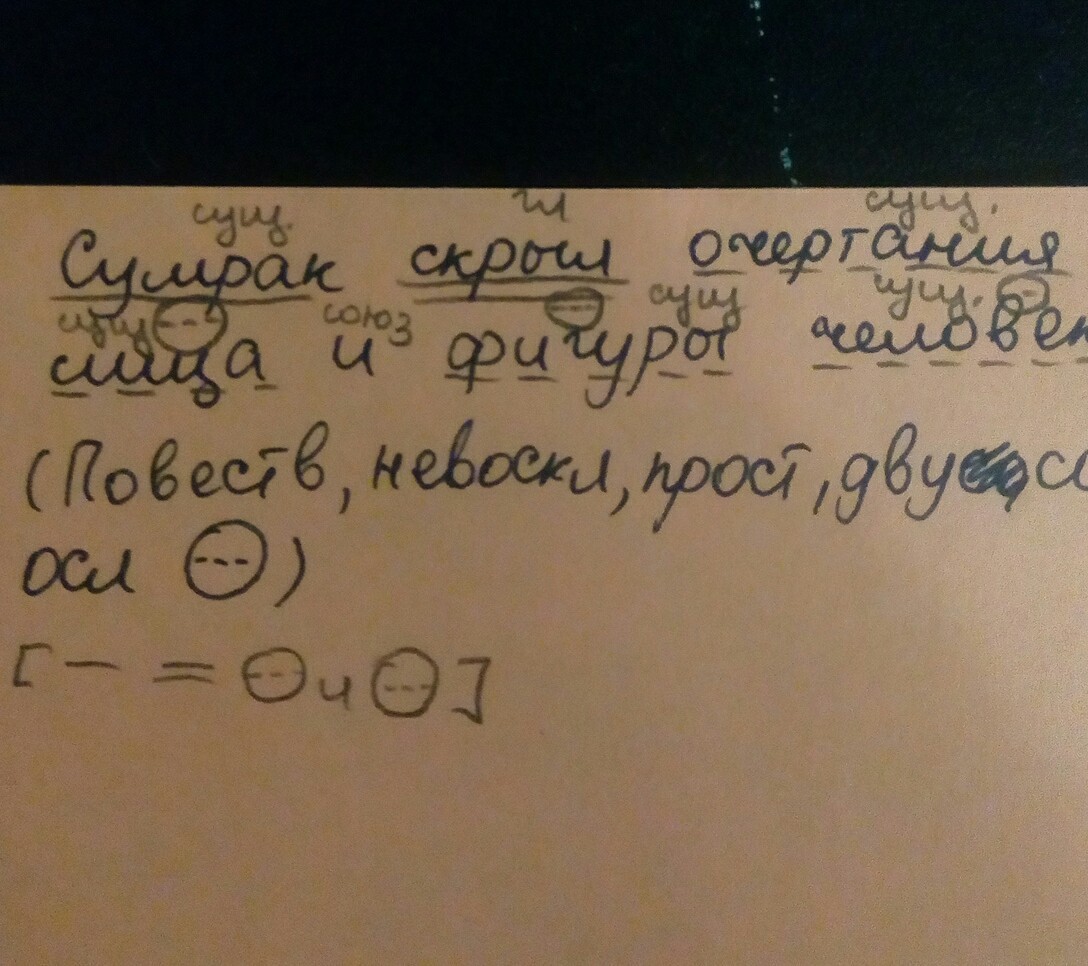 сущ. гл сущ.
Сумрак скрыл очертания
сущ союз сущ сущ.
лица и фигуры
(Повеств, невоскл, прост,
осл
[ — = и ]